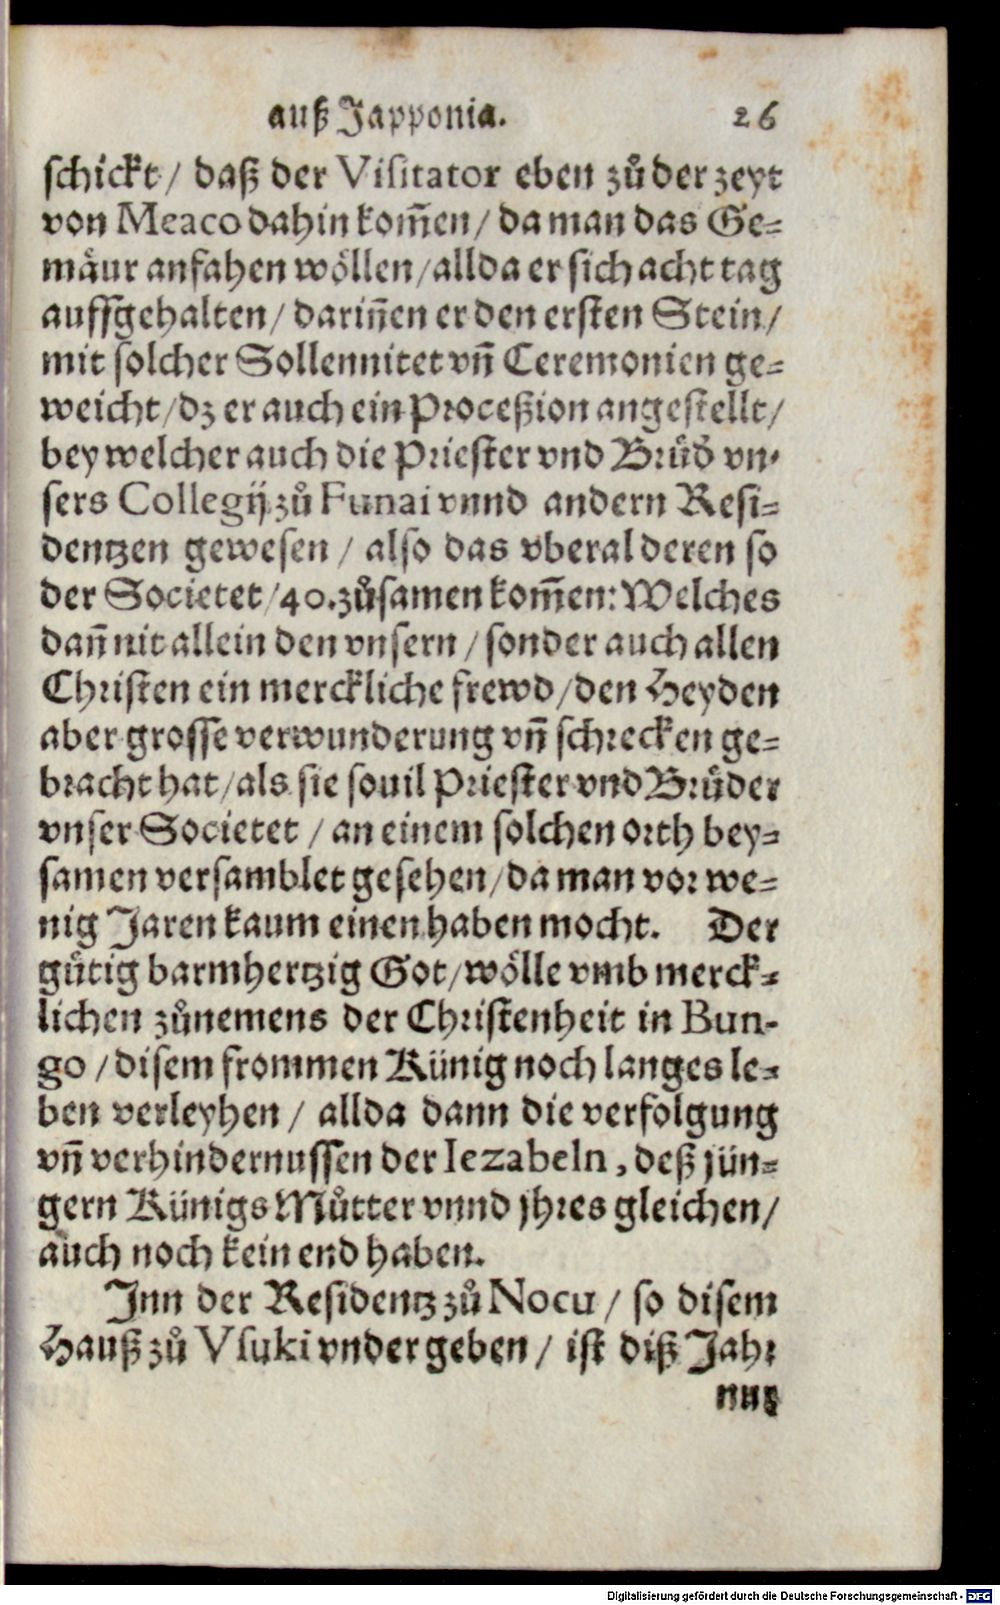 auß Japponia. 26
schickt/ daß der Visitator eben zů der zeyt
von Meaco dahin kom̃en/ da man das Ge=
mäur anfahen wöllen/ allda er sich acht tag
auffgehalten/ dariñen er den ersten Stein/
mit solcher Sollennitet vñ Ceremonien ge=
weicht/ dz er auch ein Proceßion angestellt/
bey welcher auch die Priester vnd Brüd̃ vn-
sers Collegij zů Funai vnnd andern Resi=
dentzen gewesen / also das vberal deren so
der Societet/ 40. zůsamen kom̃en: Welches
dañ nit allein den vnsern / sonder auch allen
Christen ein merckliche frewd/ den Heyden
aber grosse verwunderung vñ schrecken ge=
bracht hat/ als sie souil Priester vnd Brüder
vnser Societet / an einem solchen orth bey=
samen versamblet gesehen/ da man vor we=
nig Jaren kaum einen haben mocht. Der
gütig barmhertzig Got/ wölle vmb merck=
lichen zůnemens der Christenheit in Bun-
go / disem frommen Künig noch langes le=
ben verleyhen / allda dann die verfolgung
vñ verhindernussen der Iezabeln, deß jün=
gern Künigs Můtter vnnd jhres gleichen/
auch noch kein end haben.
Inn der Residentz zů Nocu / so disem
Hauß zů Vsuki vndergeben / ist diß Jahr
nur
Digitalisierung gefördert durch die Deutsche Forschungsgemeinschaft - DFG